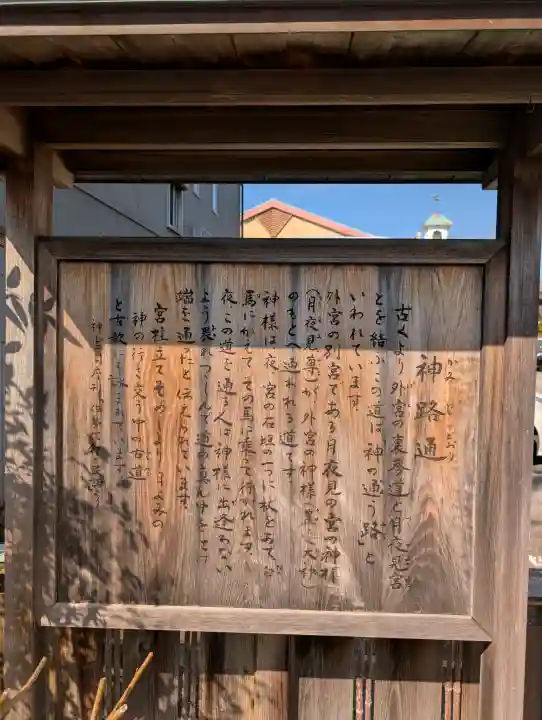 神路通
かみじどおり
古くより外宮の裏参道と月夜見宮
とを結ぶこの道は「神の通う路」と
いわれています。
外宮の別宮である月夜見の宮の神様
(月夜見尊)が外宮の神様(豊受大神)
のもとへ通われる道です。
神様は夜、宮の石垣の一つに杖をあて、白
馬にかえてその馬に乗って行かれます。
夜この道を通る人は神様に出逢わない
よう畏れつつしんで道の真ん中をさけ
端を通ったと伝えられています。
宮柱立てそめしより月よみの
神の行き交う中の古道
と古歌にも詠まれています。